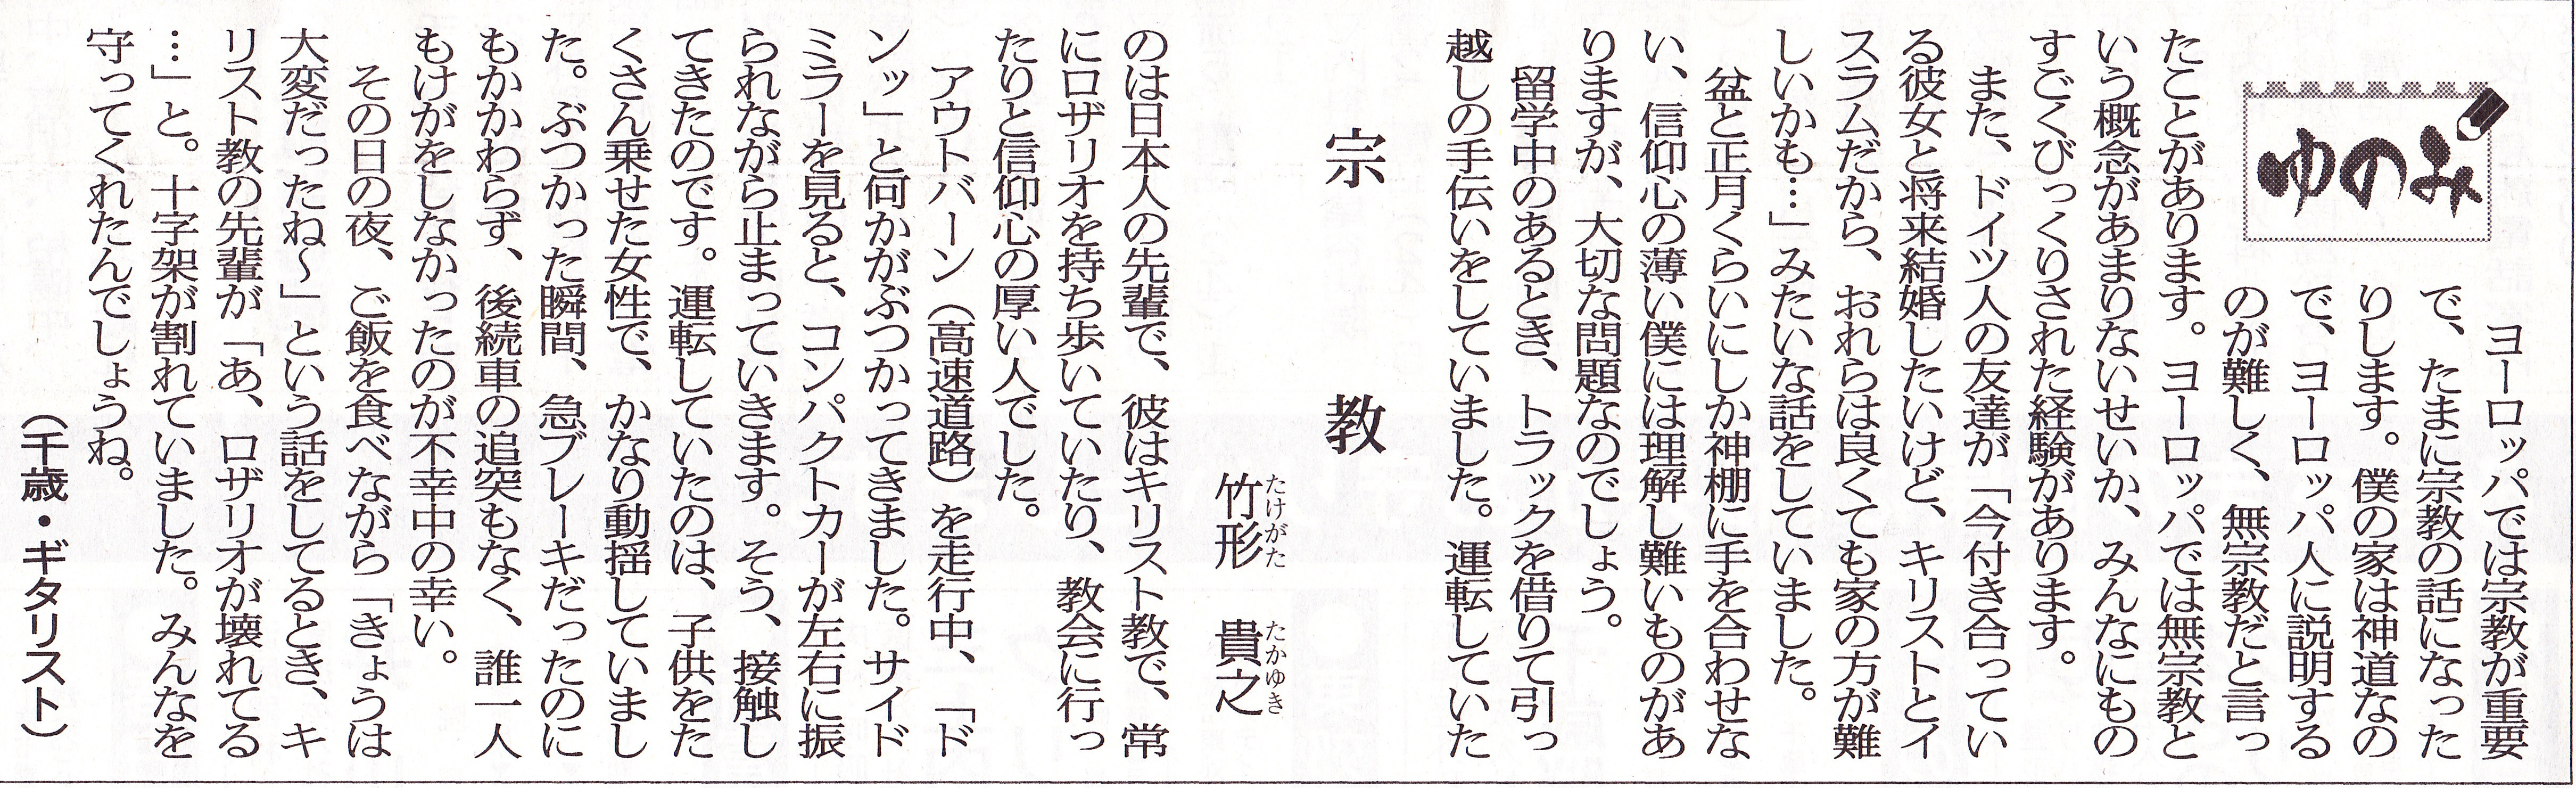 ゆのみ
ヨーロッパでは宗教が重要
で、たまに宗教の話になった
りします。僕の家は神道なの
で、ヨーロッパ人に説明する
のが難しく、無宗教だと言っ
たことがあります。ヨーロッパでは無宗教と
いう概念があまりないせいか、みんなにもの
すごくびっくりされた経験があります。
また、ドイツ人の友達が「今付き合ってい
る彼女と将来結婚したいけど、キリストとイ
スラムだから、おれらは良くても家の方が難
しいかも…」みたいな話をしていました。
盆と正月くらいにしか神棚に手を合わせな
い、信仰心の薄い僕には理解し難いものがあ
りますが、大切な問題なのでしょう。
留学中のあるとき、トラックを借りて引っ
越しの手伝いをしていました。運転していた
宗教
竹形 貴之
たけがた たかゆき
のは日本人の先輩で、彼はキリスト教で、常
にロザリオを持ち歩いていたり、教会に行っ
たりと信仰心の厚い人でした。
アウトバーン（高速道路）を走行中、「ド
ンッ」と何かがぶつかってきました。サイド
ミラーを見ると、コンパクトカーが左右に振
られながら止まっていきます。そう、接触し
てきたのです。運転していたのは、子供をた
くさん乗せた女性で、かなり動揺していまし
た。ぶつかった瞬間、急ブレーキだったのに
もかかわらず、後続車の追突もなく、誰一人
もけがをしなかったのが不幸中の幸い。
その日の夜、ご飯を食べながら「きょうは
大変だったね～」という話をしてるとき、キ
リスト教の先輩が「あ、ロザリオが壊れてる
…」と。十字架が割れていました。みんなを
守ってくれたんでしょうね。
（千歳・ギタリスト）